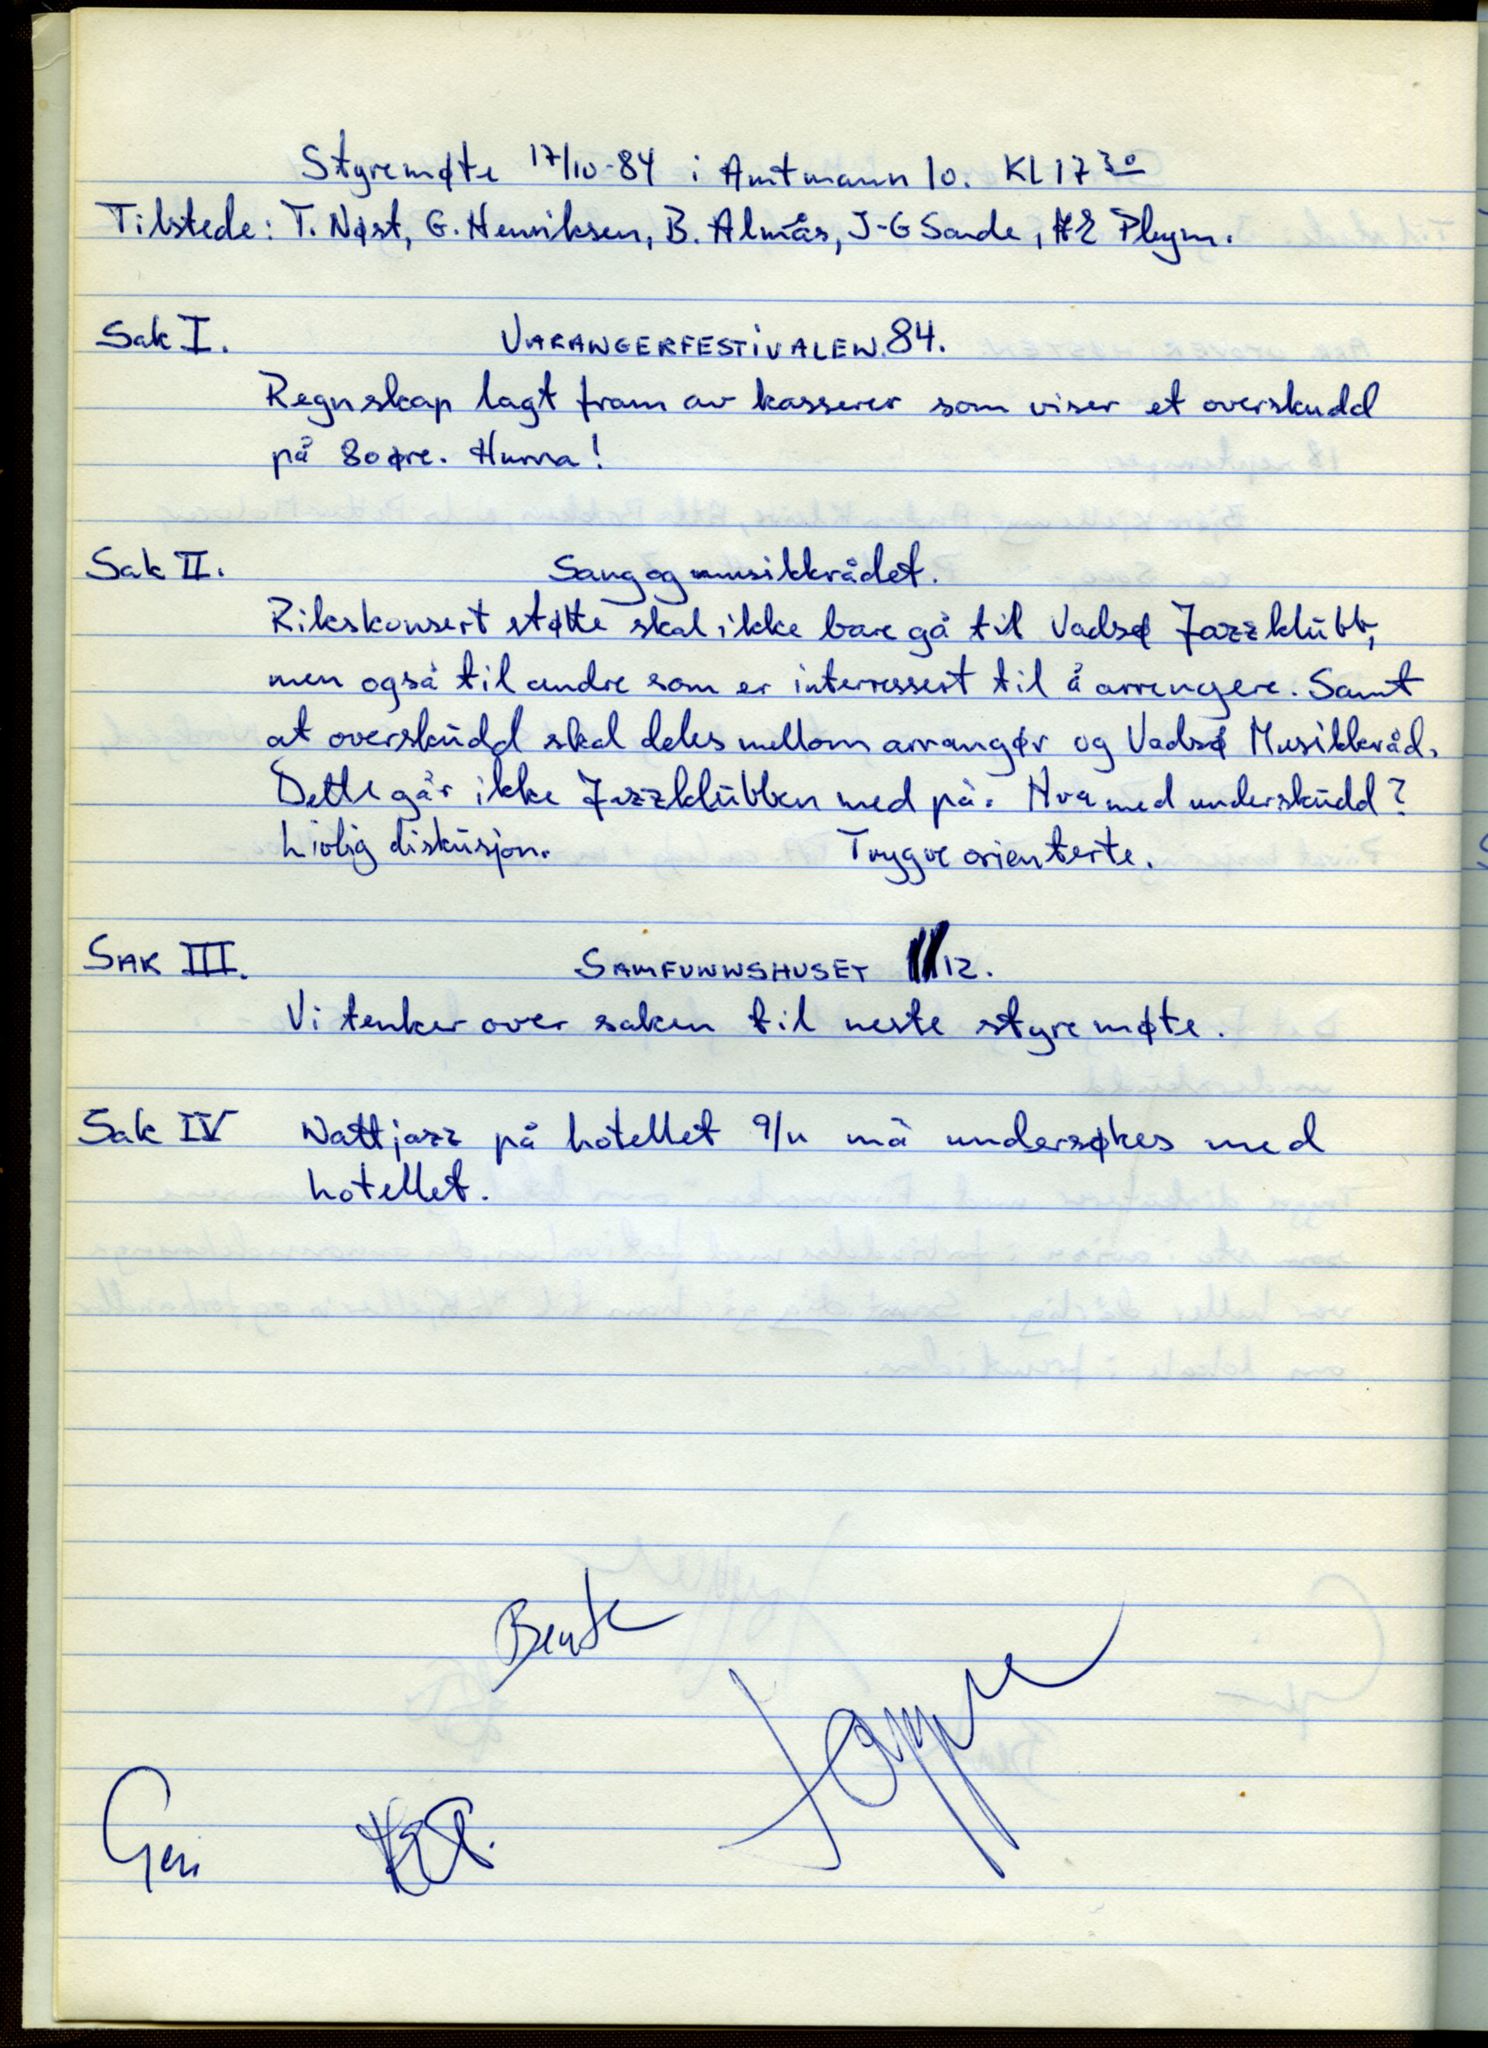 Styremøte 17/10-84 i Amtmann 10. KL 17 30
Tilstede: T. Nøst, G. Henriksen, B. Almås, J-G Sande, HE Pleym.
Sak I. VARANGERFESTIVALEN.84.
Regnskap lagt fram av kasserer som viser et overskudd
på 80 øre. Hurra!
Sak II. Sang og musikkrådet.
Rikskonsert støtte skal ikke bare gå til Vadsø Jazzklubb,
men også til andre som er interressert til å arrengere. Samt
at overskudd skal deles mellom arrangør og Vadsø Musikkråd.
Dette går ikke Jazzklubben med på. Hva med underskudd?
Livlig diskusjon. Trygve orienterte.
SAK III. SAMFUNNSHUSET 12.
Vi tenker over saken til neste styremøte.
Sak IV Nattjazz på hotellet 9/11 må undersøkes med
hotellet.
Bente
Trygve
Geir HEP.